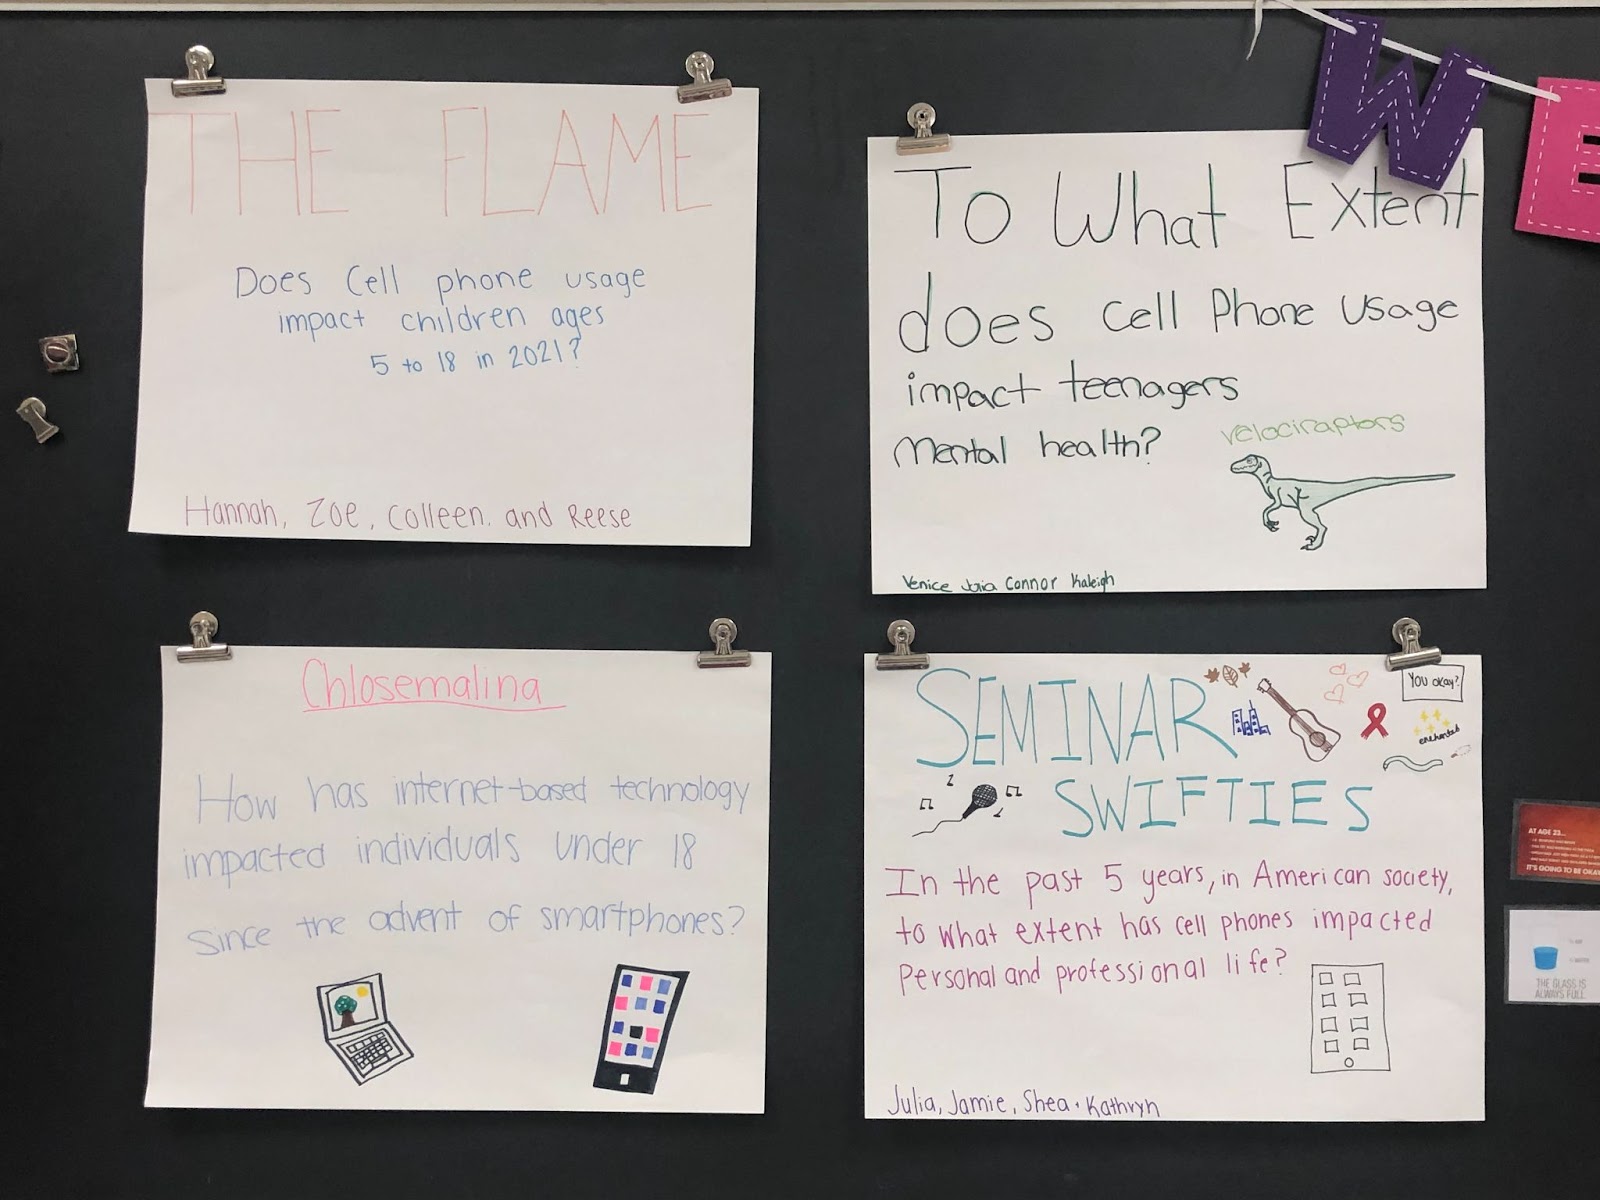 THE FLAME
Does Cell phone usage
impact children ages
5 to 18 in 2021?
Hannah, Zoe, Colleen. and Reese
WE
To What Extent
does Cell Phone Usage
impact teenagers
Mental health?
velociraptors
Venice Julia Connor Kaleigh
Chlosemalina
How has internet-based technology
impacted individuals under 18
since the advent of smartphones?
SEMINAR
SWIFTIES
YOU OKAY?
enchanted
In the past 5 years, in American society,
to what extent has cell phones impacted
personal and professional life?
Julia, Jamie, Shea + Kathryn
AT AGE 23...
IT'S GOING TO BE OKAY
THE GLASS IS
ALWAYS FULL